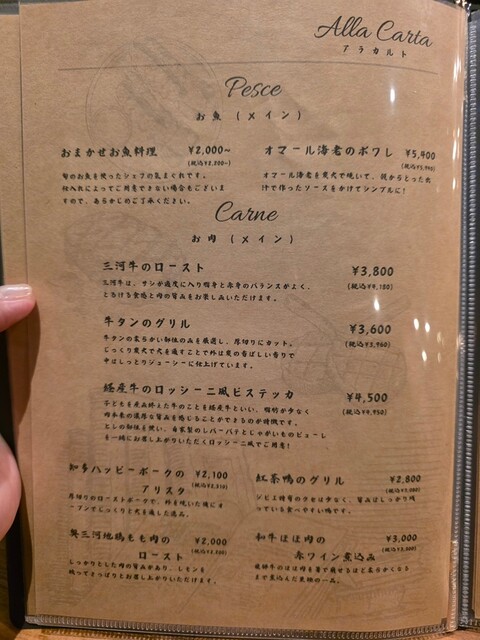 Alla Carta
アラカルト
Pesce
お魚 (メイン)
おまかせお魚料理 ¥2,000~
(税込¥2,200~)
旬のお魚を使ったシェフの気まぐれです。
仕入れによってご用意できない場合もございま
すので、あらかじめご了承ください。
オマール海老のポワレ ¥5,400
(税込¥5,940)
オマール海老を炭火で焼いて、殻からとった出
汁で作ったソースをかけてシンプルに!
Carne
お肉 (メイン)
三河牛のロースト ¥3,800
(税込¥4,180)
三河牛は、サシが適度に入り脂身と赤身のバランスがよく、
とろける食感と肉の旨みをお楽しみいただけます。
牛タンのグリル ¥3,600
(税込¥3,960)
牛タンの柔らかい部位のみを厳選し、厚切りにカット。
じっくり炭火で火を通すことで外は炭の香ばしい香りで
中はしっとりジューシーに仕上げています。
経産牛のロッシーニ風ビステッカ ¥4,500
(税込¥4,950)
子どもを産み終えた牛のことを経産牛といい、脂肪が少なく
肉本来の濃厚な旨みを感じることができるのが特徴です。
ヒレの部位を使い、自家製のレバーパテとじゃがいものピューレ
を一緒にお召し上がりいただくロッシーニ風でご用意!
知多ハッピーポークの ¥2,100
アリスタ (税込¥2,310)
厚切りのローストポークで、外を焼いた後にオ
ーブンでじっくりと火を通した逸品。
紅茶鴨のグリル ¥2,800
(税込¥3,080)
ジビエ特有のクセは少なく、旨みはしっかり残
っている食べやすい鴨です。
奥三河地鶏もも肉の ¥2,000
ロースト (税込¥2,200)
しっかりとした肉の旨みがあり、レモンを
絞ってさっぱりとお召し上がりいただけます。
和牛ほほ肉の ¥3,000
赤ワイン煮込み (税込¥3,300)
飛騨牛のほほ肉を箸で崩せるほど柔らかくなる
まで煮込んだ至極の一品。